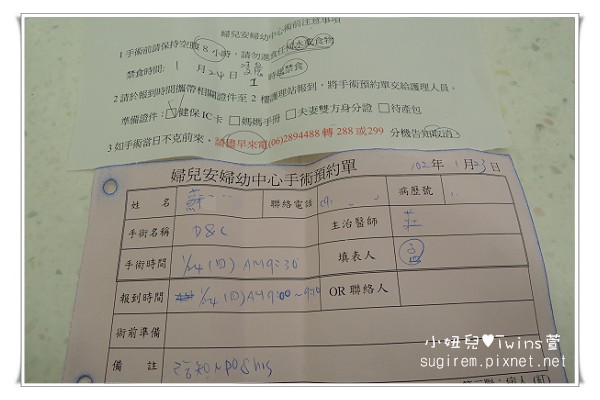 婦兒安婦幼中心術前注意事項
1 手術前請保持空腹 8 小時，請勿進食任何水或食物
禁食時間: 1 月 24 日 凌晨 1 時起禁食
2 請於報到時間攜帶相關證件至 2 樓護理站報到，將手術預約單交給護理人員。
準備證件：☑健保 IC 卡 □媽媽手冊 □夫妻雙方身分證 □待產包
3 如手術當日不克前來，請儘早來電(06)2894488 轉 288 或299 分機告知取消
婦兒安婦幼中心手術預約單
102 年 1 月 23 日
姓 名 蘇 聯絡電話 病歷號
手術名稱 D&C 主治醫師 莊
手術時間 1/24 (四) AM9:30 填表人 孟
報到時間 1/24 (四) AM9:00~9:10 OR 聯絡人
術前準備
備 註 告知NPO8hrs
小妞兒♥Twins萱
sugirem.pixnet.net